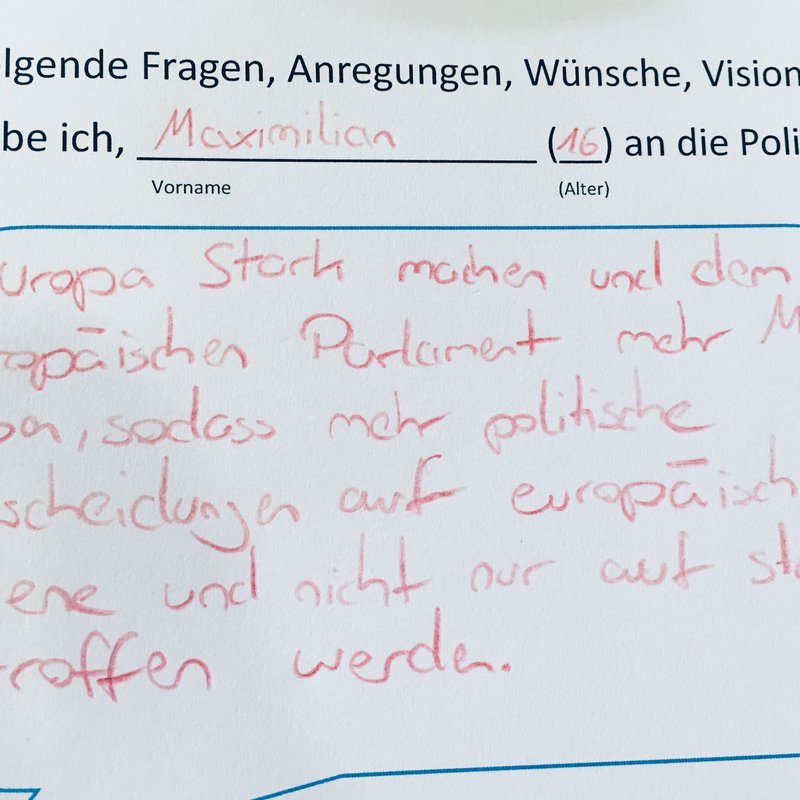 lgende Fragen, Anregungen, Wünsche, Vision
be ich, Maximilian (16) an die Poli
Vorname (Alter)
uropa Stark machen und dem
ropäischen Parlament mehr M
sodass mehr politische
scheidungen auf europäisch
ene und nicht nur auf sta
roffen werden.